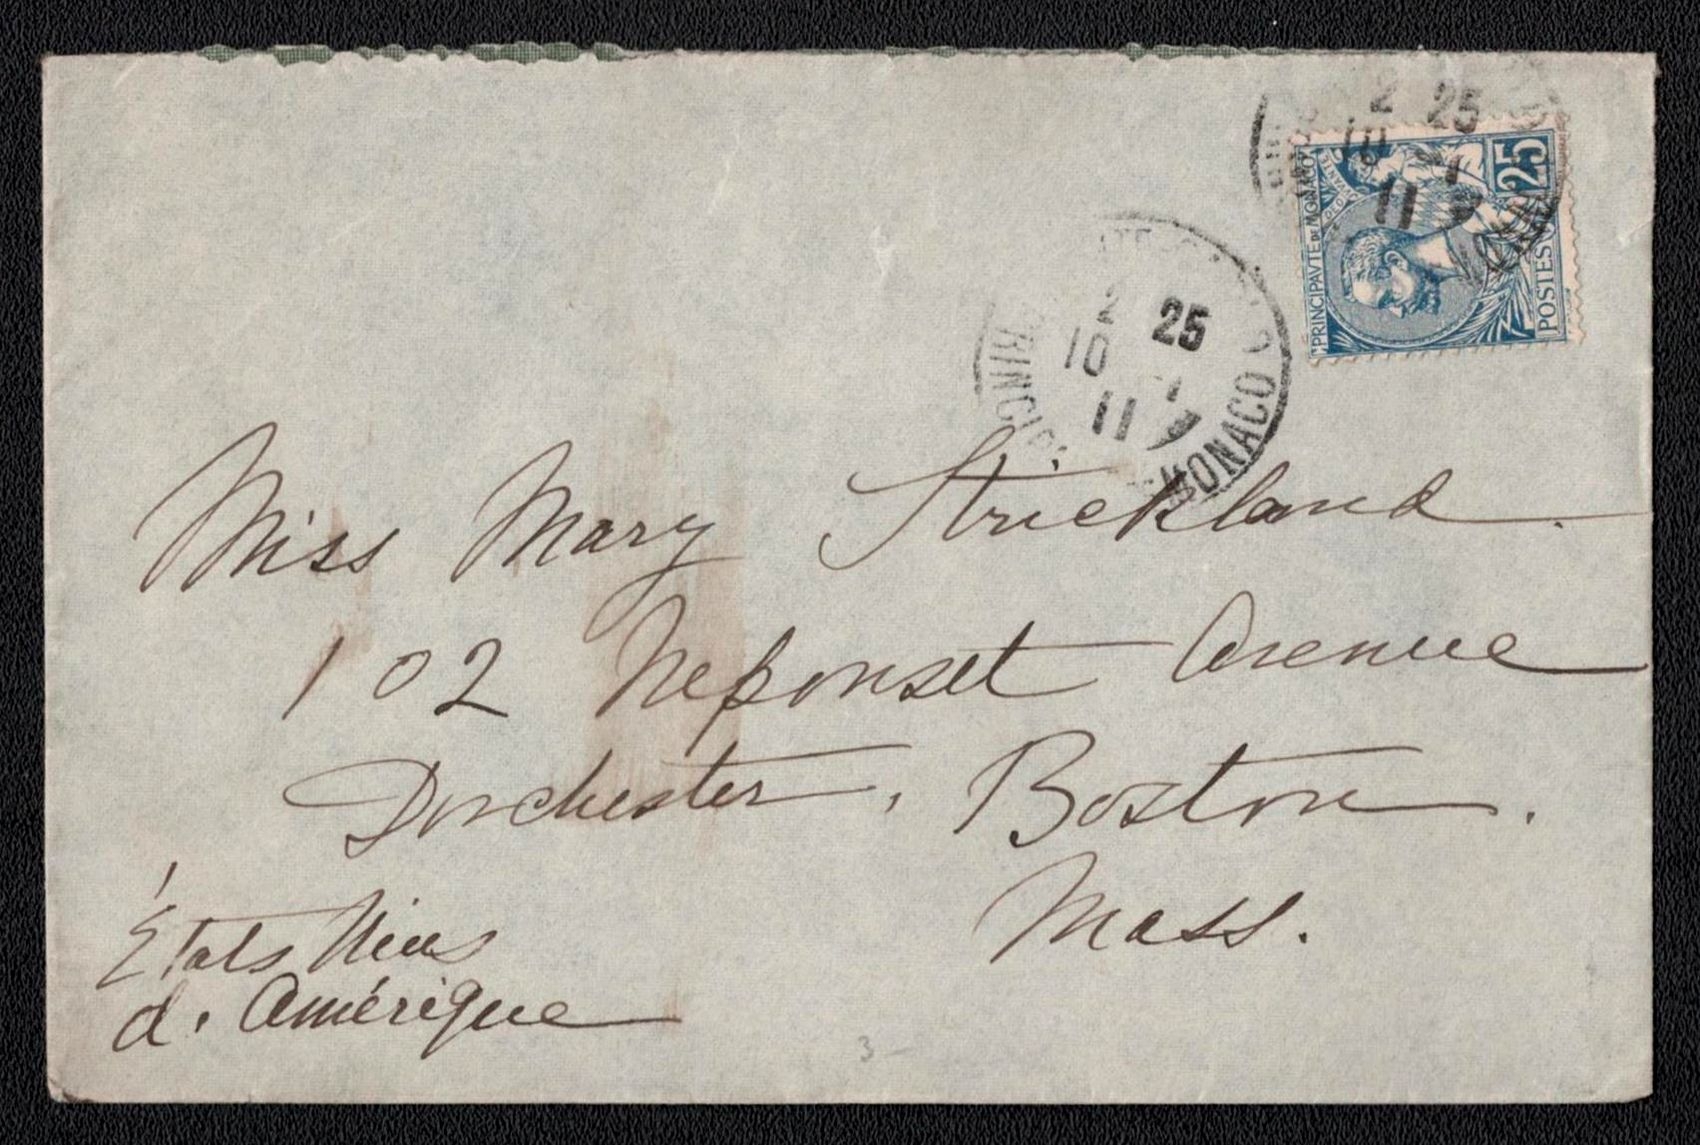 2 25
10
11
25
PRINCIPAUTÉ DE MONACO
POSTES
2 25
10
11
MONACO
Miss Mary Strickland.
102 Neponset Avenue
Dorchester, Boston.
Mass.
États Unis
d. Amérique
3-